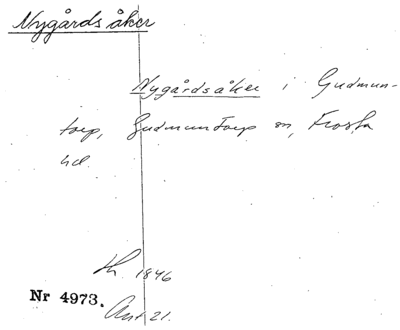 Nygårdsåker
Nygårdsåker i Gudmun-
torp, Gudmuntorp sn, Frosta
hd.
1846
Nr 4973.
Ant. 21.